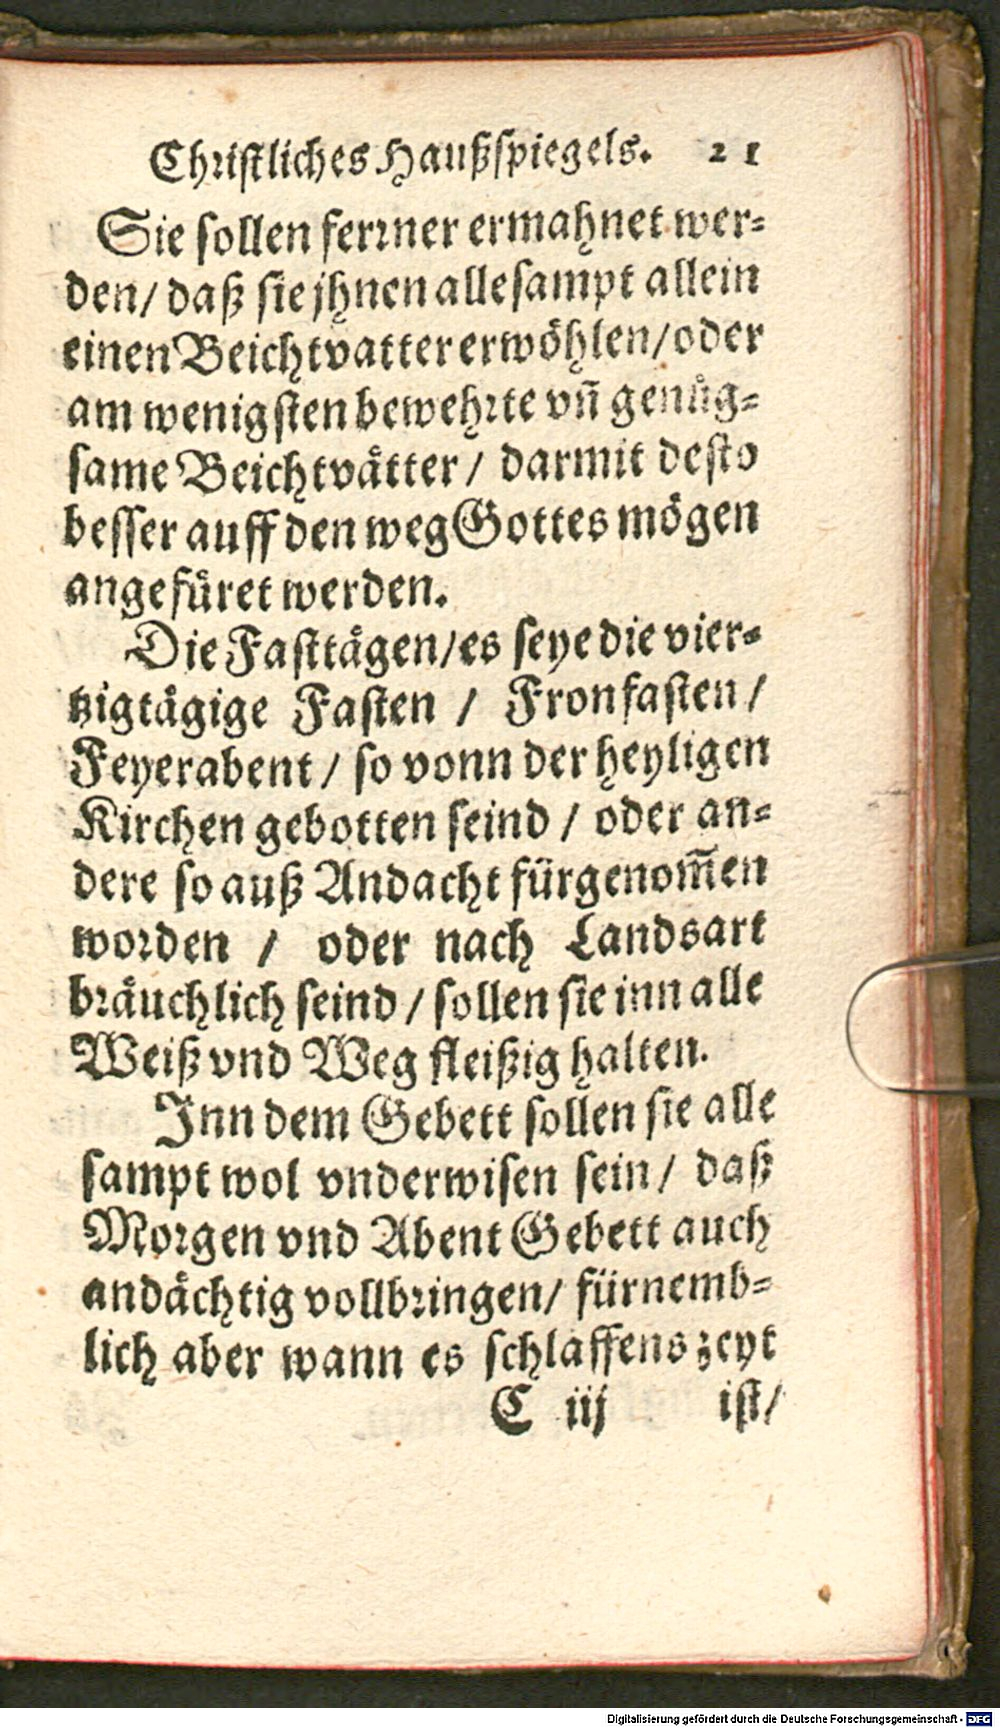 Christliches Haußspiegels. 21
Sie sollen ferrner ermahnet wer-
den/ daß sie jhnen allesampt allein
einen Beichtvatter erwöhlen/ oder
am wenigsten bewehrte vn̄ genůg-
same Beichtvätter/ darmit desto
besser auff den weg Gottes mögen
angefüret werden.
Die Fasttägen/ es seye die vier-
tzigtägige Fasten / Fronfasten/
Feyerabent/ so vonn der heyligen
Kirchen gebotten seind / oder an-
dere so auß Andacht fürgenom̄en
worden / oder nach Landsart
bräuchlich seind / sollen sie inn alle
Weiß vnd Weg fleißig halten.
Inn dem Gebett sollen sie alle
sampt wol vnderwisen sein/ daß
Morgen vnd Abent Gebett auch
andächtig vollbringen/ fürnemb-
lich aber wann es schlaffens zeyt
C iij ist/
Digitalisierung gefördert durch die Deutsche Forschungsgemeinschaft - DFG